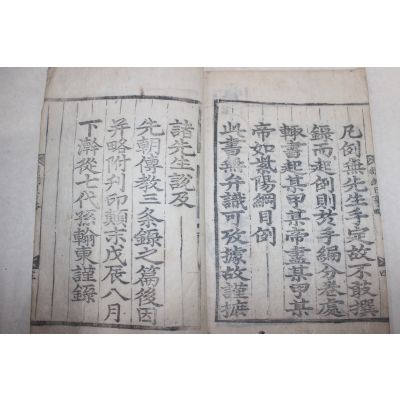 凡例無先生手定故不敢撰
錄而起例則於手編分卷處
輙書起某甲某帝盡某甲某
帝如紫陽綱目例
此書無弁識可攷據故謹摭
諸先生說及
先朝傳教三条錄之篇後因
并略附刊印顚末戊辰八月
下澣從七代孫翰東謹錄